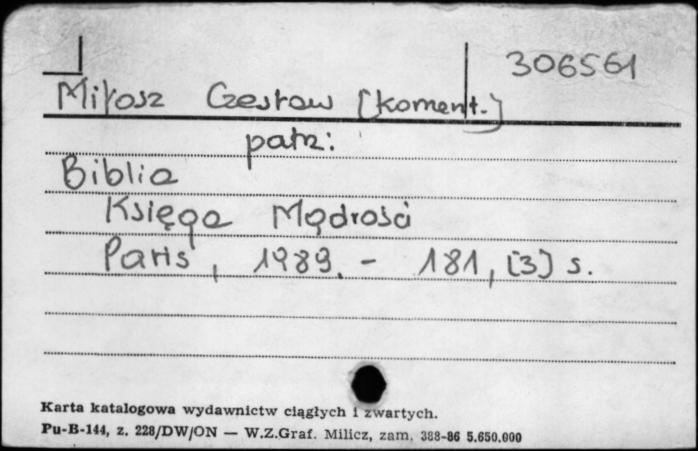 306561
Miłosz Czesław [koment.]
patrz:
Biblia
Księga Mądrości
Paris, 1989. - 181, [3] s.
Karta katalogowa wydawnictw ciągłych i zwartych.
Pu-B-144, z. 228/DW/ON — W.Z.Graf. Milicz, zam. 388-86 5.650.000